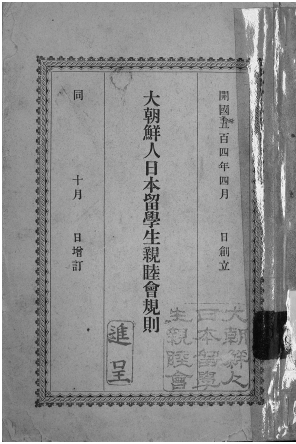 開國五百四年四月 日創立
大朝鮮人日本留學生親睦會規則
同 十月 日增訂
大朝鮮人
日本留學
生親睦會
進呈